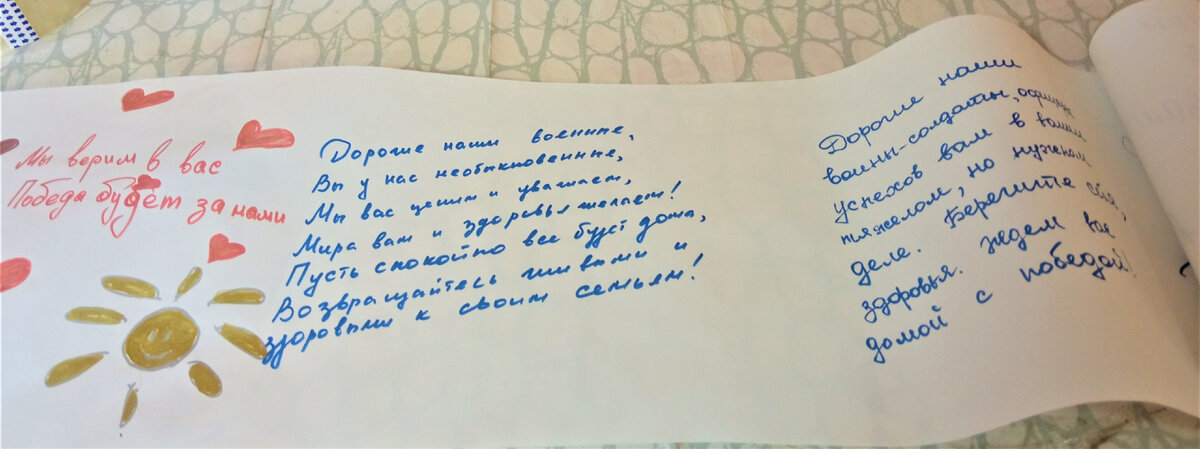 Мы верим в вас
Победа будет за нами
Дорогие наши военные,
Вы у нас необыкновенные,
Мы вас ценим и уважаем,
Мира вам и здоровья желаем!
Пусть спокойно все будет дома,
Возвращайтесь живыми и
здоровыми к своим семьям!
Дорогие наши
воины-солдаты,
успехов вам в вашем
тяжелом, но нужном
деле. Берегите себя,
здоровья. Ждем вас
домой с победой!